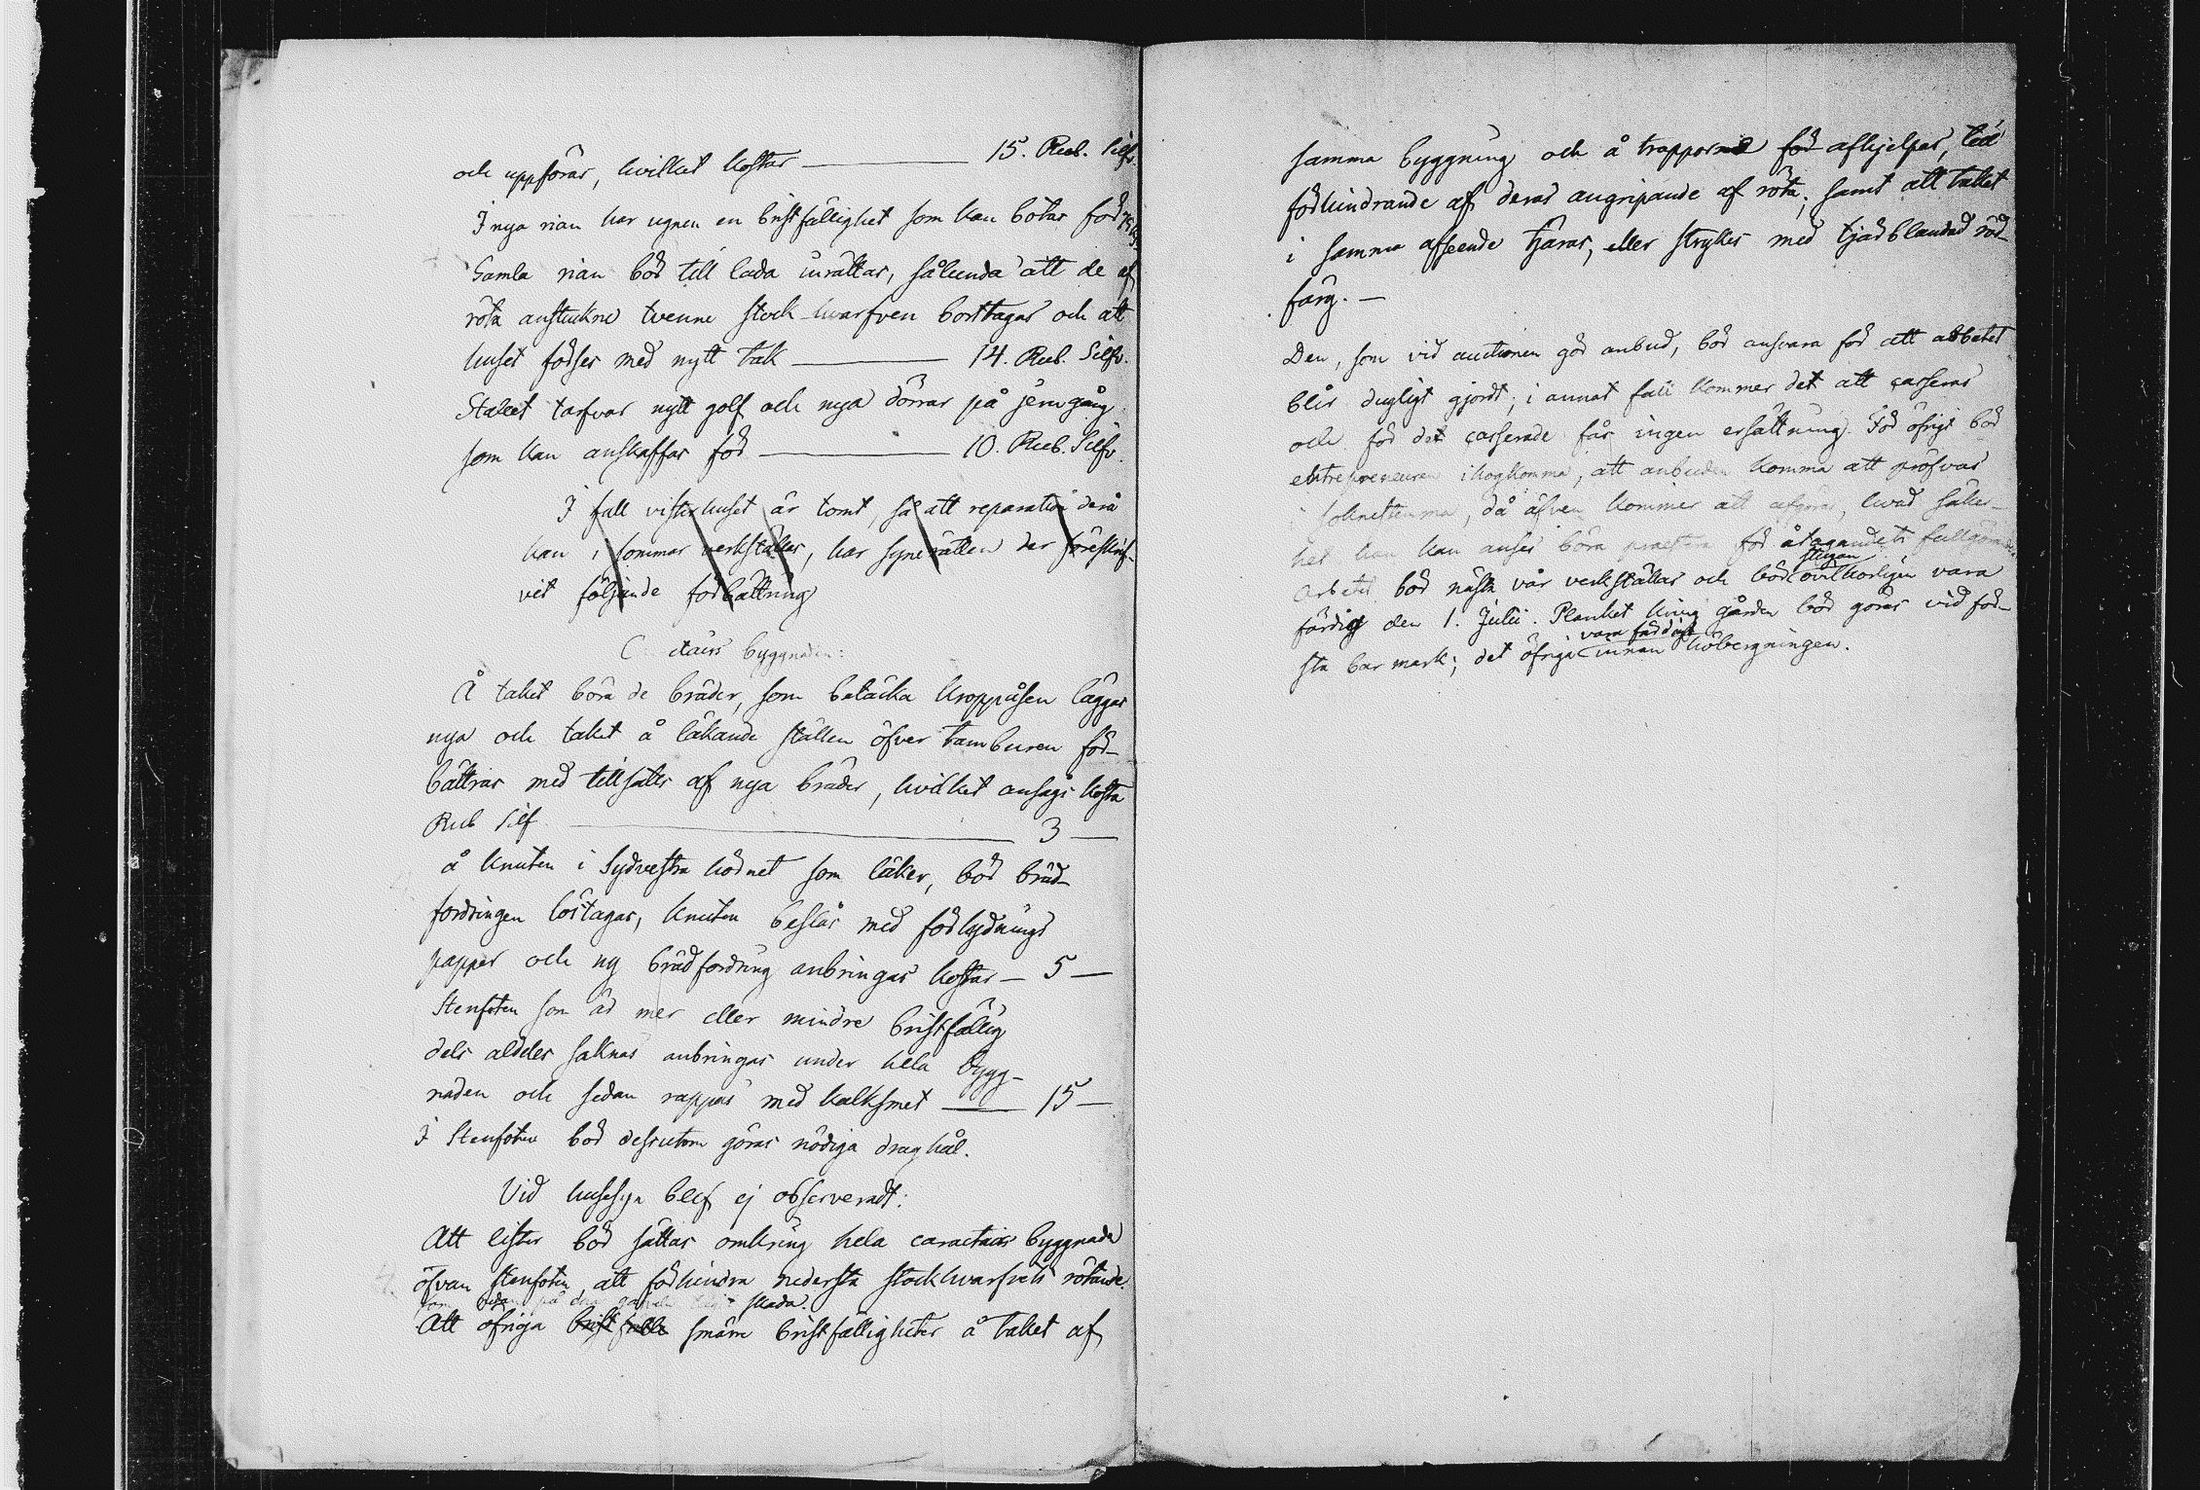 och uppföras, hvilket kostar — 15. Rub. Silfv.
I nya rian har ugnen en bristfällighet som kan botas för
Gamla rian bör till lada inrättas, sålunda att de af
röta anstuckne tvenne stock-hvarfven borttagas och att
huset förses med nytt tak — 14. Rub. Silfv.
Stallet tarfvar nytt golf och nya dörrar på jerngång
som kan anskaffas för — 10. Rub. Silfv.
I fall visthuset är tomt, så att reparation derå
kan i sommar verkställas, har synerätten der föreskrif-
vit följande förbättring
byggnaden:
Å taket böra de bräder, som betäcka kroppåsen läggas
nya och taket å läkande ställen öfver tamburen för-
bättras med tillsatts af nya bräder, hvilket ansågs kosta
Rub Silf — 3 —
å knuten i Sydvestra hörnet som läker, bör bräd-
fordringen löstagas, knuten beslås med förhydnings
papper och ny brädfordring anbringas kostar — 5 —
Stenfoten som är mer eller mindre bristfällig
dels aldeles saknas anbringas under hela bygg-
naden och sedan rappas med kalksmet — 15 —
I Stenfoten bör dessutom göras nödiga draghål.
Vid husesyn blef ej observeradt:
Att lister bör sättas omkring hela caractairs byggnade
öfvan stenfoten att förhindra nedersta stockhvarfvets rötande.
skada.
Att öfriga brist fälle smärre bristfälligheter å taket af
samma byggning och å trapporna för afhjelpas, till
förhindrande af deras angripande af röta; samt att taket
i samma afseende tjäras, eller strykes med tjärblandad röd-
färg. —
Den, som vid auctionen gör anbud, bör ansvara för att arbetet
blir dugligt gjordt; i annat fall kommer det att casseras
och för det casserade fås ingen ersättning. För öfrigt bör
entrepreneuren ihogkomma, att anbuden komma att pröfvas
i soknestemma, då äfven kommer att afgöras, hvad säker-
het han kan anses böra praestera för åtagandets fullgörande.
stugan
Arbetet bör nästa vår verkställas och bör ovilkorligen vara
färdig den 1. Julii. Planket kring gården bör göras vid för-
vara färdigt
sta bar mark; det öfriga innan höbergningen.